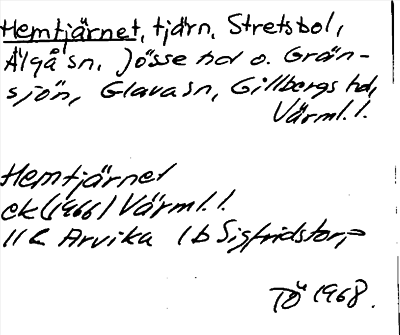 Hemtjärnet, tjärn, Stretsbol,
Älgå sn, Jösse hd o. Grän-
sjön, Glava sn, Gillbergs hd,
Värml. l.
Hemtjärnet
ek (1966) Värml. l.
11 C Arvika 1 b Sigfridstorp
TÖ 1968.